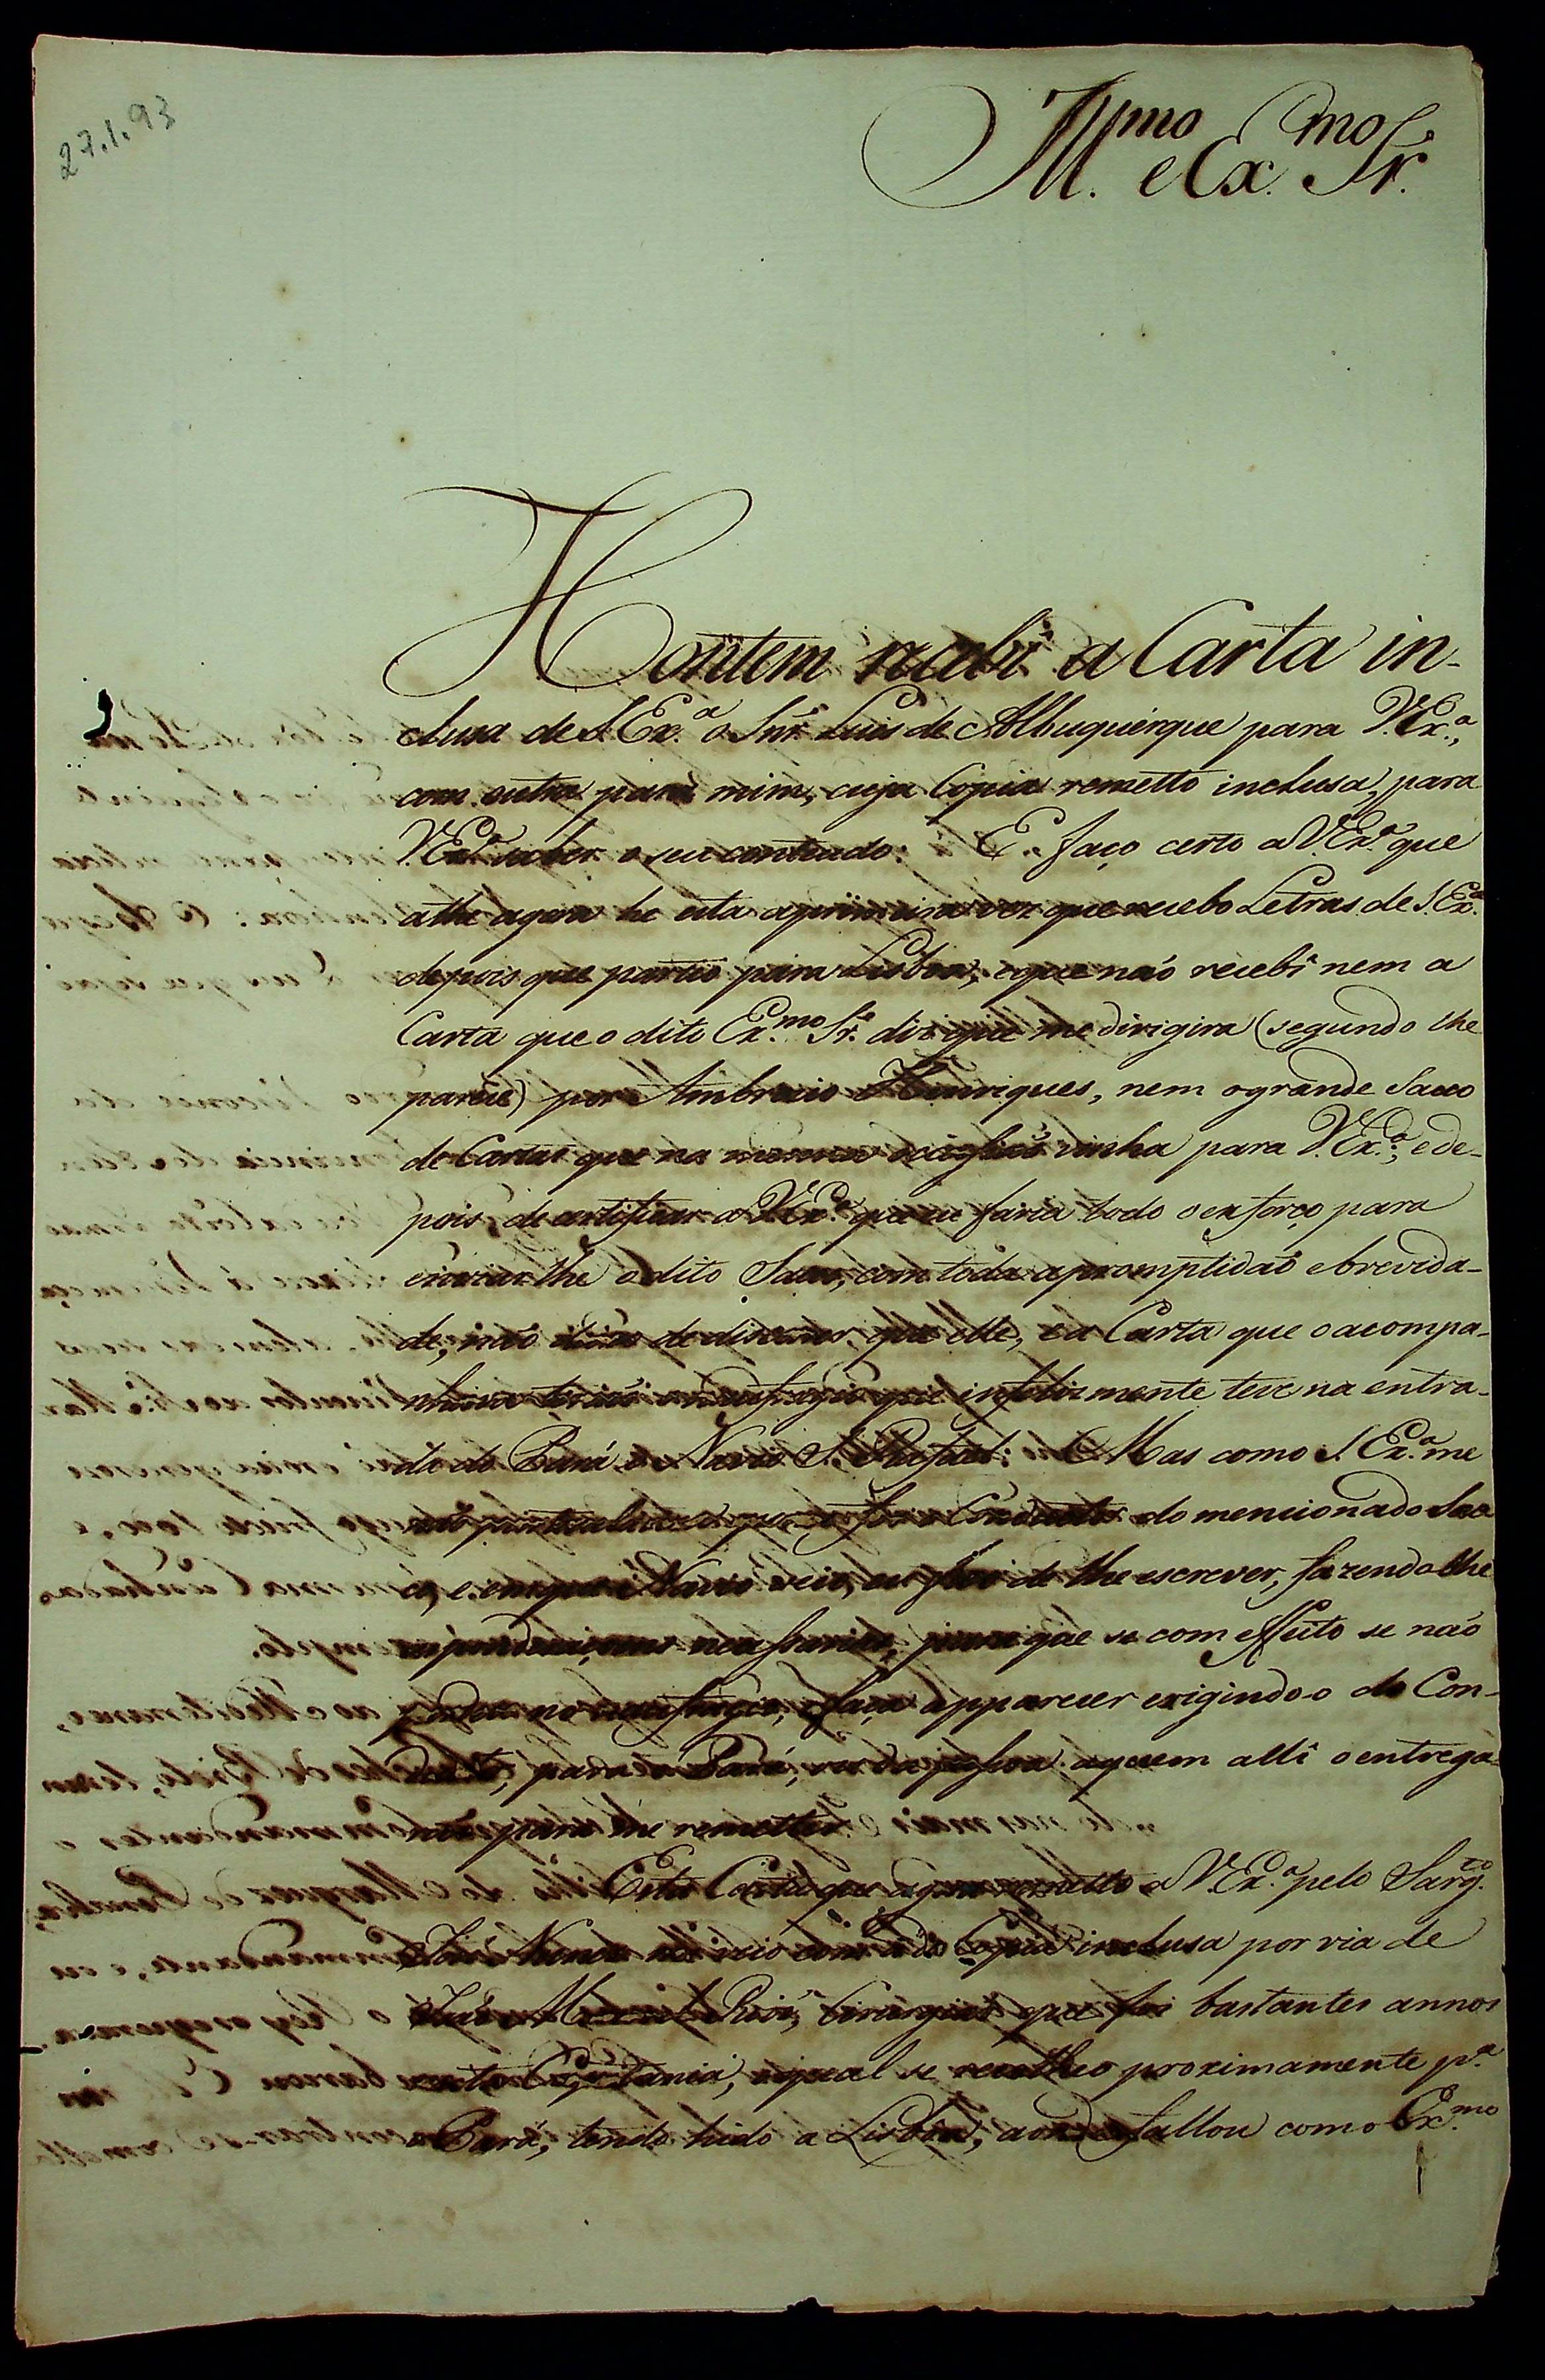 27.1.93
Ill.mo e Ex.mo Sr.
Hontem recebi a Carta in-
clusa de S. Ex.a o Snr. Luis de Albuquerque para V. Ex.a,
com outra para mim, cuja Copia remetto inclusa, para
V. Ex.a saber o seu contheudo: E faço certo a V. Ex.a que
athe agora he esta aprimeira vez que recebo Letras de S. Ex.a
depois que partio para Lisboa; eque não recebî nem a
Carta que o dito Ex.mo Sr. diz que me dirigira (segundo lhe
parece) por Ambrozio Henriques, nem ogrande Sacco
de Cartas que na mesma occazião vinha para V. Ex.a; e de-
pois de certificar a V. Ex.a que eu faria todo o exforço para
enviar lhe o dito Sacco, com toda apromptidaõ ebrevida-
de, não deixo de dizer que elle, e a Carta que o acompa-
nhava no naufragio que infelizmente teve na entra-
da do Pará o Navio S. Rafael: Mas como S. Ex.a me
não o Conductor do mencionado Sac-
co, e em que Navio veio, eu hei de lhe escrever, fazendolhe
as ponderaçoens necessarias, para que se com effeito se não
perdeu no naufragio, o faça apparecer exigindo-o do Con-
ductor, para o Pará, ou da pessoa aquem allî o entrega-
para me remetter.
Esta Carta que agora remetto a V. Ex.a pelo Sarg.to
José me veio com a da Copia inclusa por via de
Cirurgião que foi bastantes annos
nesta Capitania, oqual se recolheo proximamente p.a
o Pará, tendo hido a Lisboa, aonde fallou como Ex.mo